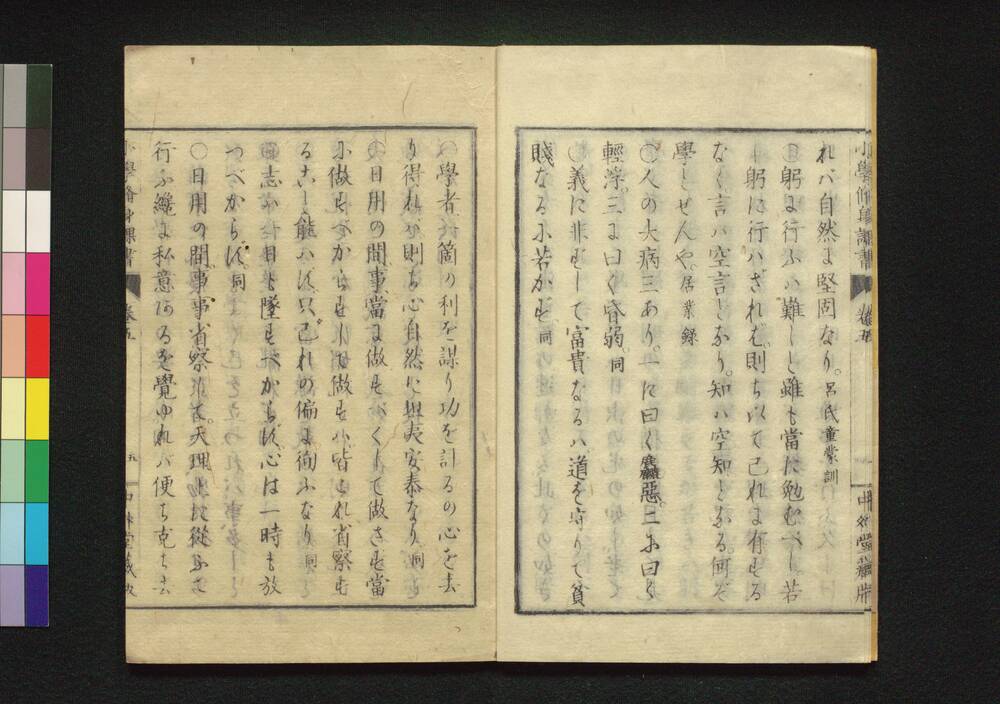 小學修身課書 卷五 中外堂藏版
れバ自然に堅固なり。呂氏童蒙訓
〇躬に行ふハ難しと雖も當に勉むべし若
し躬に行ハざれバ則ち以て己れに有する
なく言ハ空言となり。知ハ空知となる。何ぞ
學とせんや。居業録
〇人の大病三あり。一に曰く麁惡。二に曰く
輕浮。三に曰く昏弱。同
〇義に非ずして富貴なるハ道を守りて貧
賤なるに若かず同
〇學者箇の利を謀り功を計るの心を去
り得れバ則ち心自然に坦夷安泰なり同
〇日用の間事當に做すべくして做さず當
に做すべからずして做すハ皆これ省察す
る能ハず只己れの偏に徇ふなり同
〇志ハ一日も墜すべからず心は一時も放
つべからず。同
〇日用の間事事省察して天理に從ふて
行ふ纔に私意あるを覺ゆれバ便ち克ち去
小學脩身課書 卷五 五 中外堂藏版